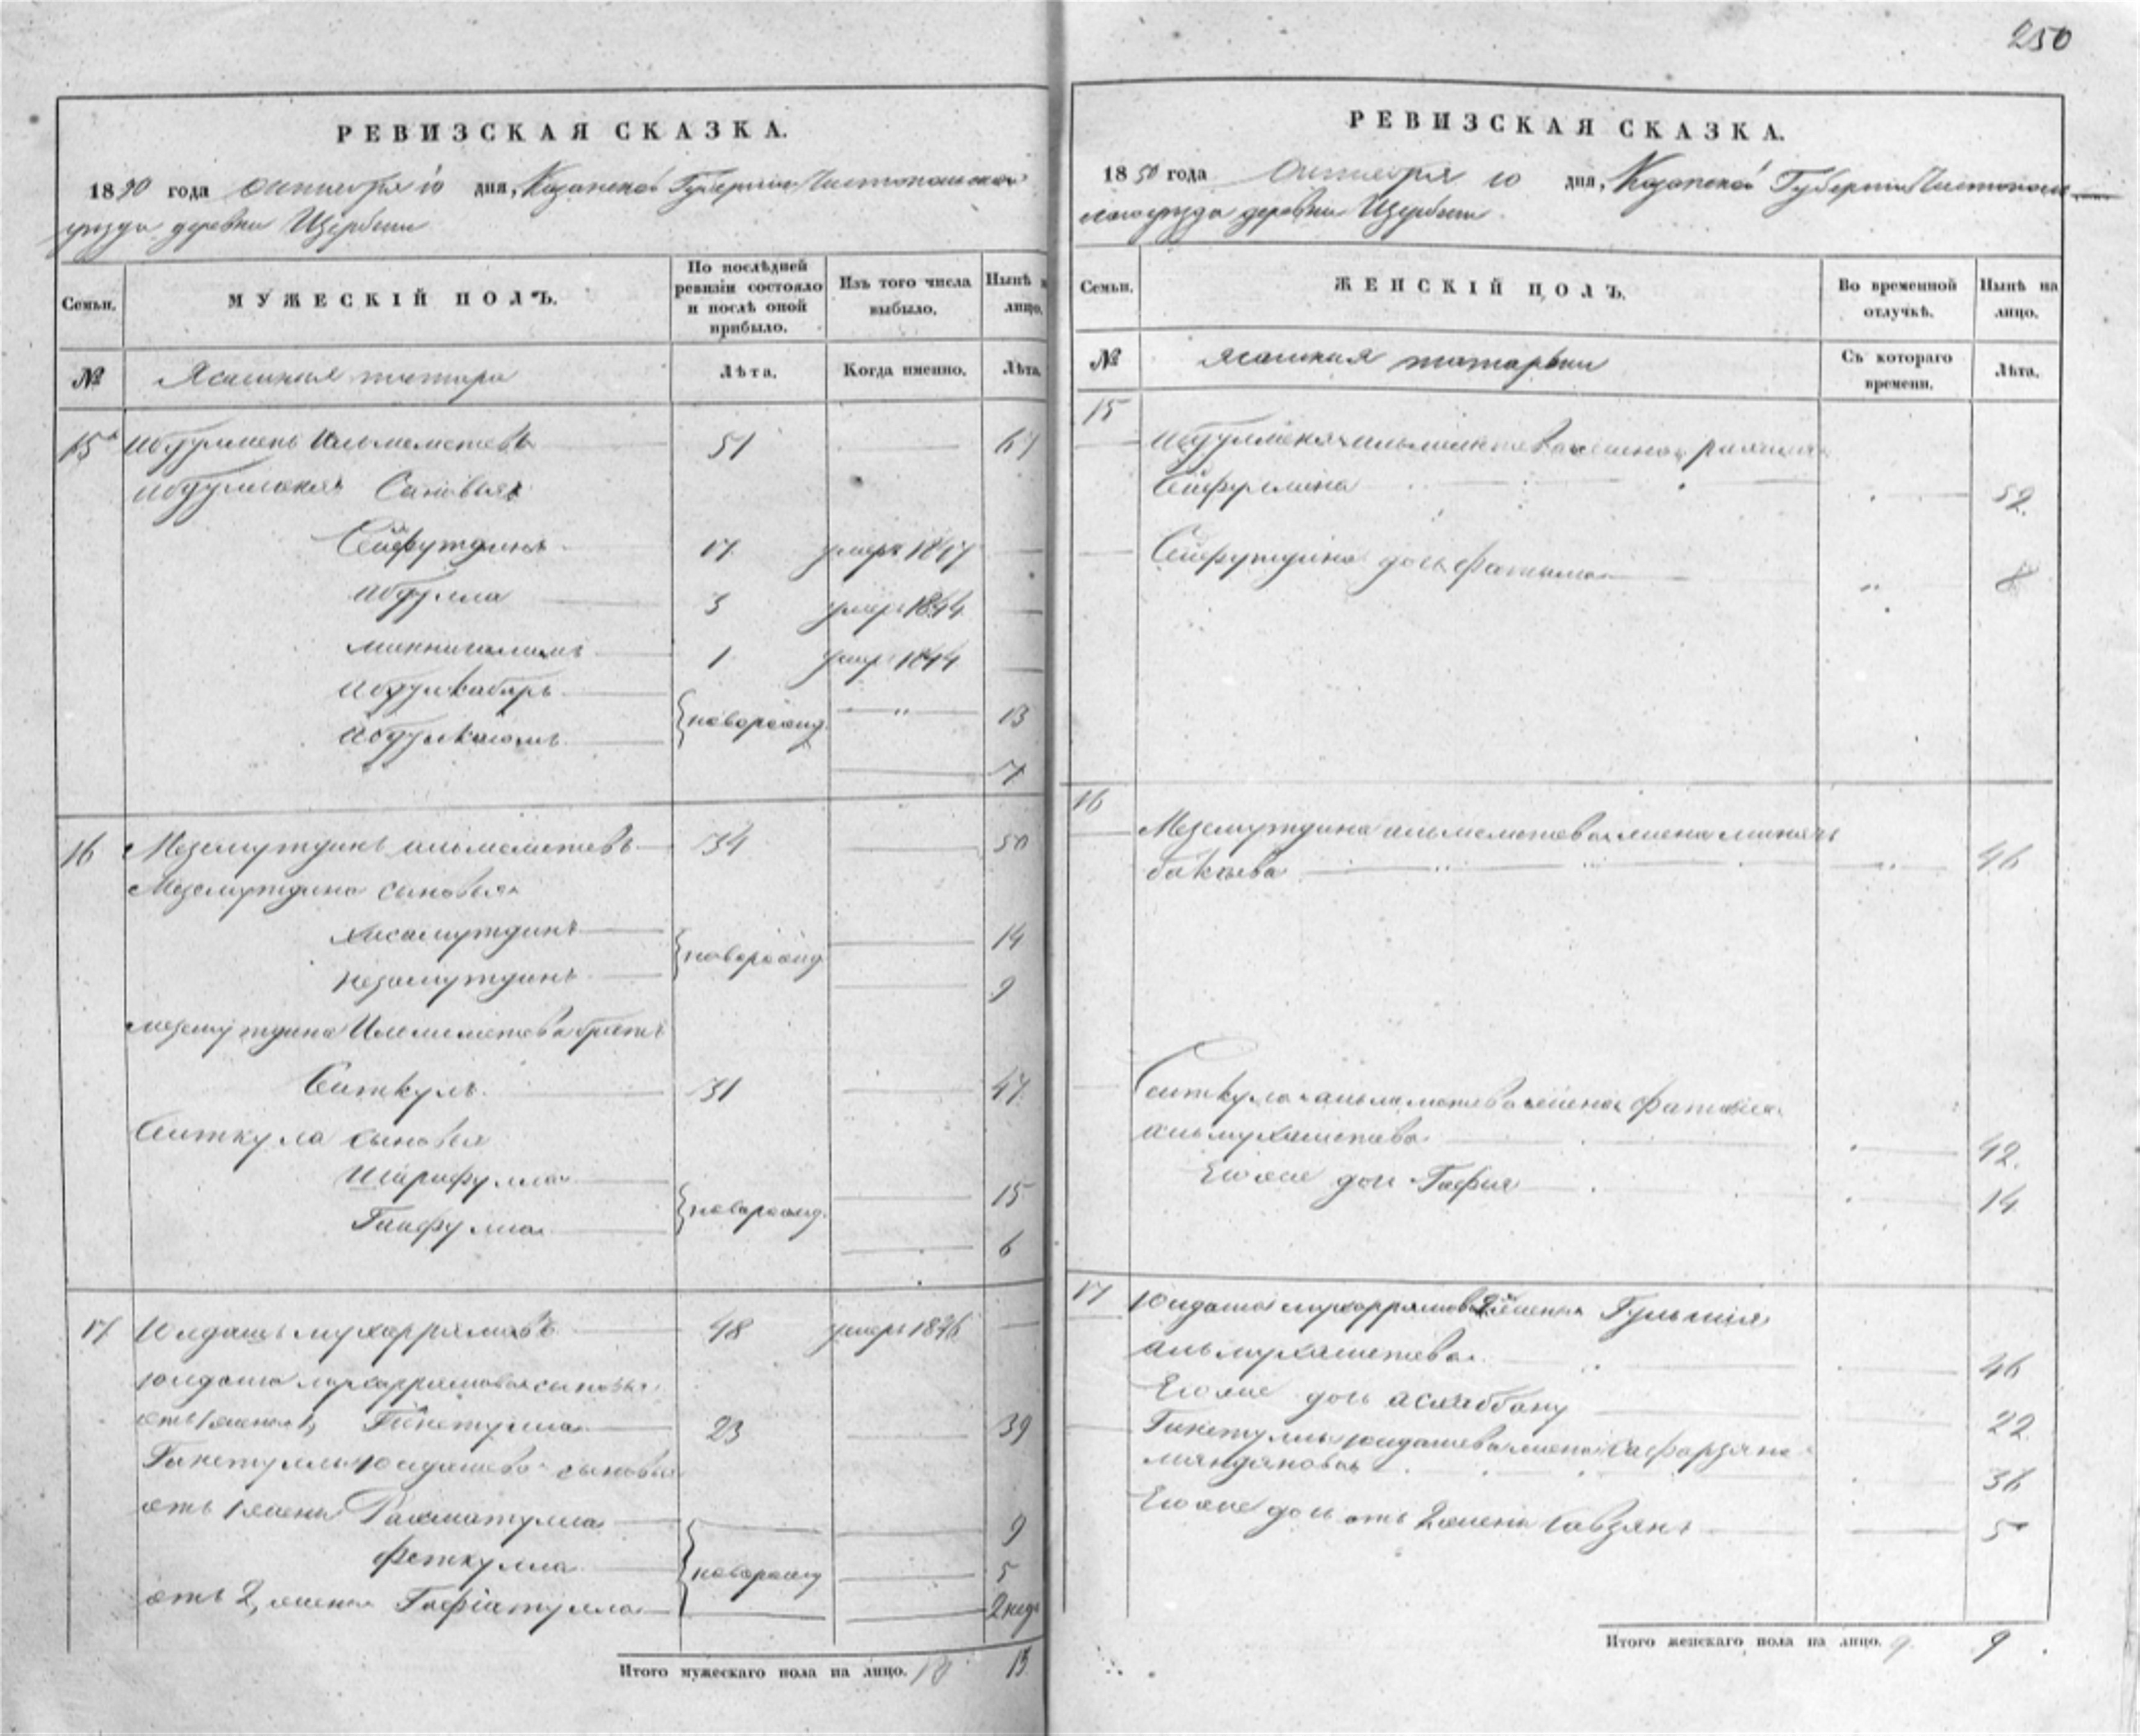 250
РЕВИЗСКАЯ СКАЗКА.
1850 года октября 10 дня, Казанской Губернии Чистопольскаго
уезда деревни Щербени
Семьи.
МУЖЕСКІЙ ПОЛЪ.
По послѣдней ревизіи состояло и послѣ оной прибыло.
Изъ того числа выбыло.
Нынѣ на лицо.
№
Ясашныя татара
Лѣта.
Когда именно.
Лѣта.
15 Абдулменъ Ильмеметевъ 51 67
Абдулменя Сыновья
Сейфутдинъ 17 умеръ 1847
Абдулла 3 умеръ 1844
Миннигалимъ 1 умеръ 1844
Абдулкабаръ новорожд. 13
Абдулкаюмъ 7
16 Мезамутдинъ Ильмеметевъ 34 50
Мезамутдина сыновья
Хисамутдинъ новорожд 14
Незамутдинъ 9
Мезамутдина Ильмеметева братъ
Ситкулъ 31 47
Ситкула сыновья
Шарифулла новорожд. 15
Гайфулла 6
17 Юлдашъ Мухаррямовъ 48 умеръ 1846
Юлдаша Мухаррямова сыновья
отъ 1 жены Гинетулла 23 39
Гинетуллы Юлдашева сыновья
отъ 1 жены Рахматулла 9
Феткулла новорожд 5
отъ 2, жены Гафіатулла 2 нед
Итого мужескаго пола на лицо. 13
РЕВИЗСКАЯ СКАЗКА.
1850 года Октября 10 дня, Казанской Губерніи Чистополь
скаго уезда деревни Щербени
Семьи.
ЖЕНСКІЙ ПОЛЪ.
Во временной отлучкѣ.
Нынѣ на лицо.
№
Ясашныя татарки
Съ котораго времени.
Лѣта.
15
Абдулменя Ильмеметева жена
Сейфуллина 52
Сейфутдина дочь Фатыма 8
16
Мезамутдина Ильмеметева жена
бакъева 46
Ситкула Ильмеметева жена Фатиха
альмухаметева 42
Его же дочь Гафия 14
17 Юлдаша Мухаррямова 2 жена
альмухаметева 46
Его же дочь 22
Гинетуллы Юлдашева жена
36
Его же дочь отъ 2 жены 5
Итого женскаго пола на лицо. 9 9